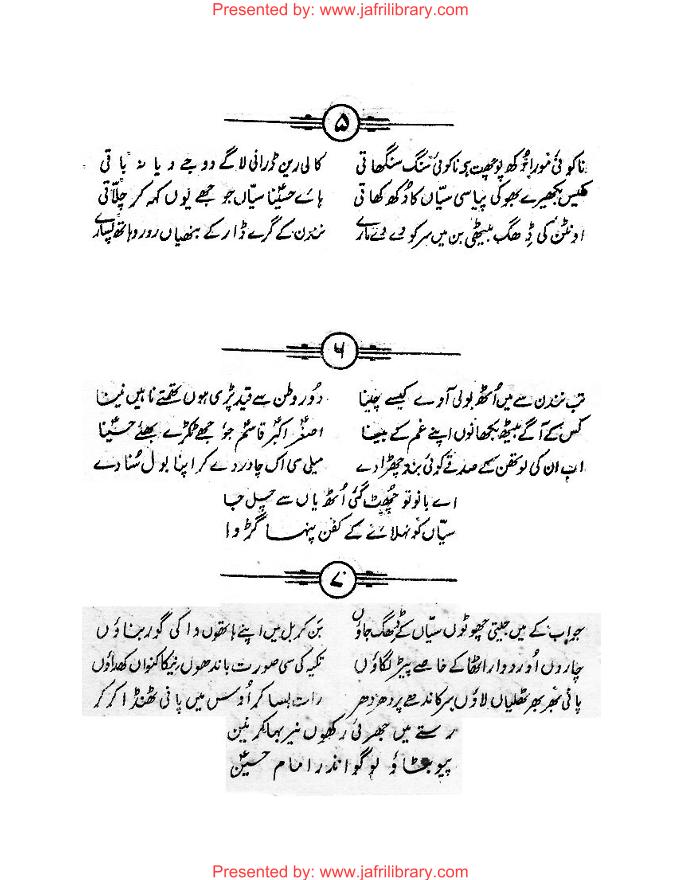 Presented by: www.jafrilibrary.com
۵
ناکوئی مورا دُکھ پوچھت ہے ناکوئی سنگ سنگھاتی کالی رین ڈرانی لاگے دوجے دیا نہ باتی
کھیس بکھیرے بھوکی پیاسی سیّاں کا دُکھ کھاتی ہائے حسیناؑ سیّاں جو مجھے یوں کہہ کر چلّاتی
اونٹن کی ڈھگ بیٹھی بن میں سر کو دے دے مارے نندن کے گرے ڈار کے بنھیاں رو رو ہاتھ پسارے
۶
تب نندن سے میں اُٹھ بولی آوے کیسے چینا دُور وطن سے قید پڑی ہوں تھمتے ناہیں نینا
کس کے آگے بیٹھ بکھانوں اپنے غم کے بینا اصغرؑ اکبرؑ قاسمؑ جو مجھے ٹکڑے بھئے حسیناؑ
اب ان کی لوتھن کے صدقے کوئی بند چھڑا دے میلی سی اک چادر دے کر اپنا بول سُنا دے
اے بانو تو چھٹ گئی اُٹھ یاں سے چل جا
سیّاں کو نہلائے کے کفن پنہا گڑوا
۷
جواب کے میں جیتی چھوٹوں سیّاں کے ڈھگ جاؤں بَن کربل میں اپنے ہاتھوں وا کی گور بناؤں
چاروں اُور دوار اٹھا کے خاصے پیڑ لگاؤں تکیہ کی سی صورت باندھوں نیکا کنواں کھداؤں
پانی بھر بھر ٹھلیاں لاؤں سر کاندھے پر دھر دھر رات بسا کر اُوس میں پانی ٹھنڈا کر کر
رستے میں جھرنی رکھوں نیر بہا کر نین
پیو بٹاؤ لوگو انذر امام حسینؑ
Presented by: www.jafrilibrary.com